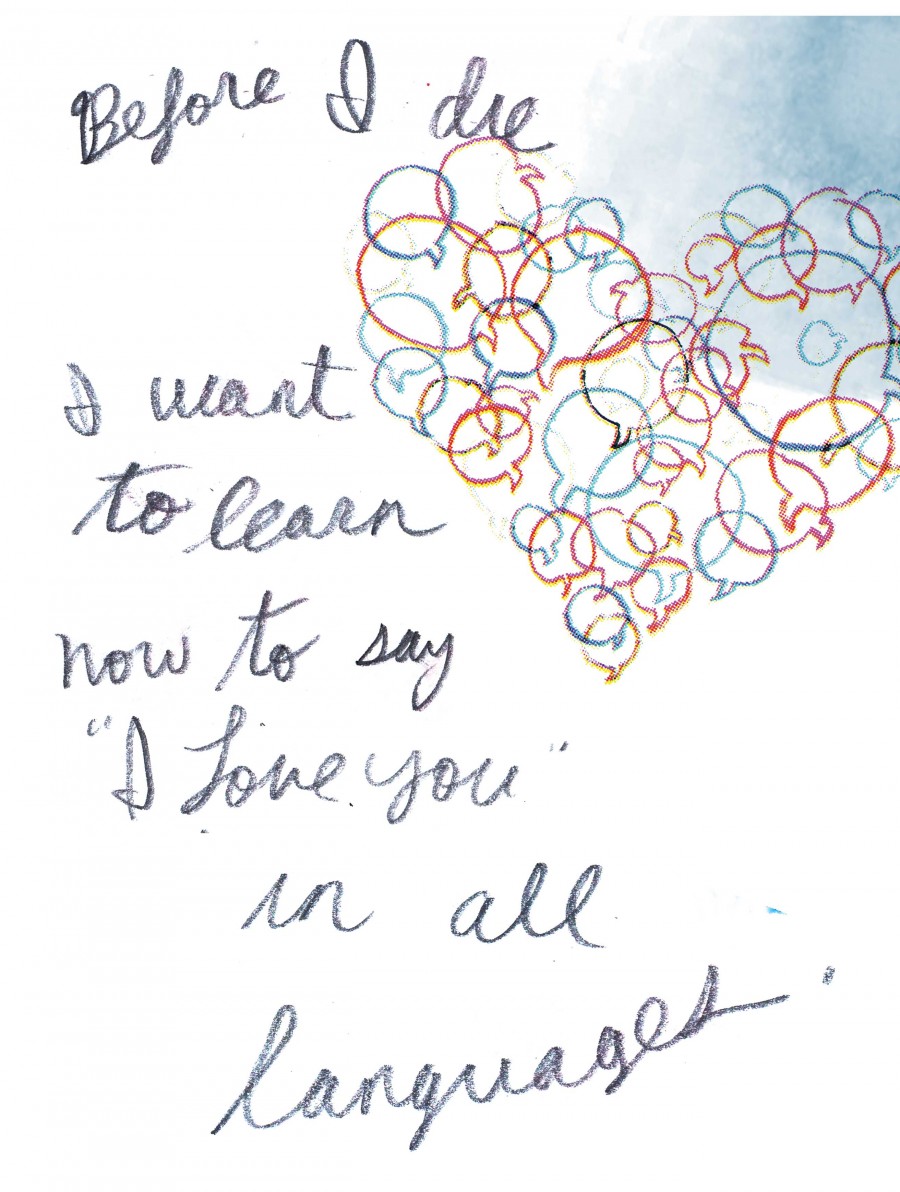 Before I die
I want
to learn
how to say
"I Love you"
in all
languages.